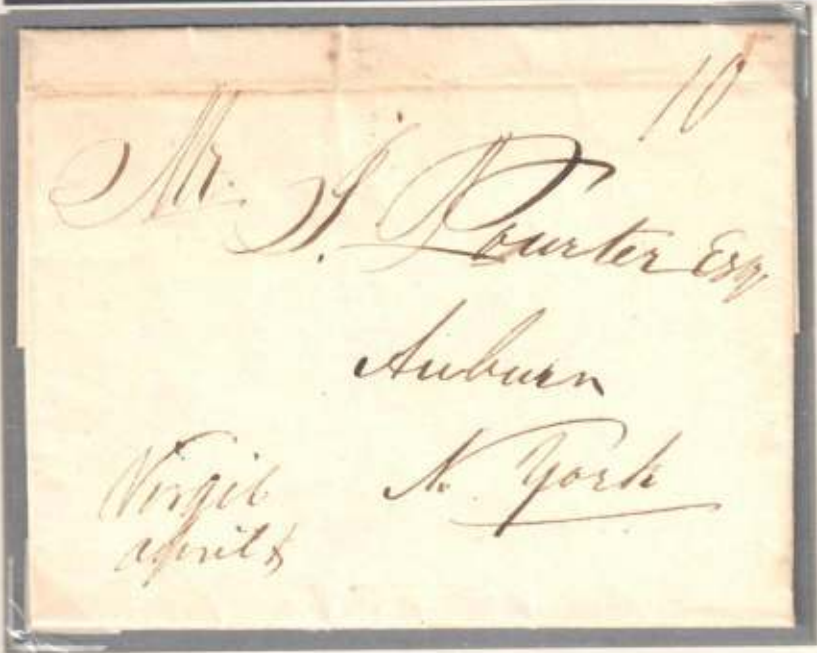 10
Mr. J. Pourter Esq
Auburn
N. York
Virgil
april